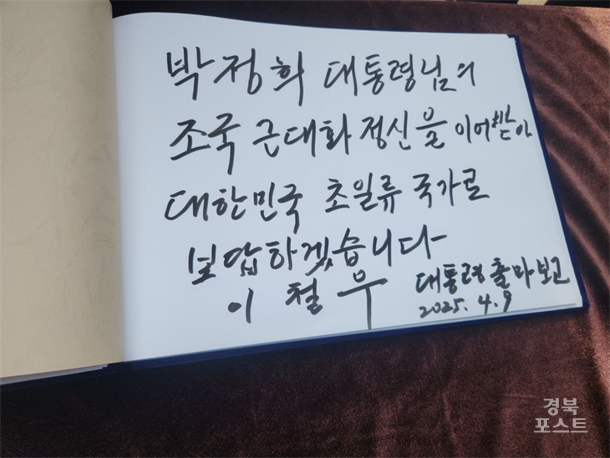 박정희 대통령님의
조국 근대화 정신을 이어받아
대한민국 초일류 국가로
보답하겠습니다
이 철 우
대통령 출마 보고
2025. 4. 9
경북
포스트